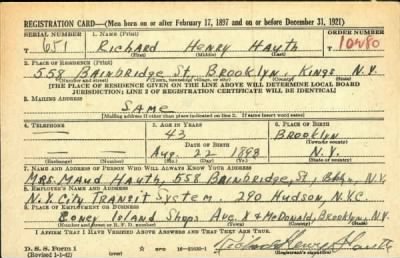 REGISTRATION CARD—(Men born on or after February 17, 1897 and on or before December 31, 1921)
SERIAL NUMBER 1. NAME (Print) ORDER NUMBER
T 651 Richard Henry Hauth 10480
(First) (Middle) (Last)
2. PLACE OF RESIDENCE (Print)
558 Bainbridge St, Brooklyn Kings N.Y.
(Number and street) (Town, township, village, or city) (County) (State)
[THE PLACE OF RESIDENCE GIVEN ON THE LINE ABOVE WILL DETERMINE LOCAL BOARD
JURISDICTION; LINE 2 OF REGISTRATION CERTIFICATE WILL BE IDENTICAL]
3. MAILING ADDRESS
SAME
[Mailing address if other than place indicated on line 2. If same insert word same]
4. TELEPHONE 5. AGE IN YEARS 6. PLACE OF BIRTH
43 Brooklyn
DATE OF BIRTH (Town or county)
Aug. 22 1898 N.Y.
(Exchange) (Number) (Mo.) (Day) (Yr.) (State or country)
7. NAME AND ADDRESS OF PERSON WHO WILL ALWAYS KNOW YOUR ADDRESS
Mrs. Maud Hauth, 558 Bainbridge, St, Bklyn, N.Y.
8. EMPLOYER'S NAME AND ADDRESS
N.Y. City Transit System. 290 Hudson, N.Y.C.
9. PLACE OF EMPLOYMENT OR BUSINESS
Coney Island Shops Ave. X & McDonald, Brooklyn, N.Y.
(Number and street or R. F. D. number) (Town) (County) (State)
I AFFIRM THAT I HAVE VERIFIED ABOVE ANSWERS AND THAT THEY ARE TRUE.
D. S. S. Form 1
(Revised 1-1-42) (over) Richard Henry Hauth
(Registrant's signature)